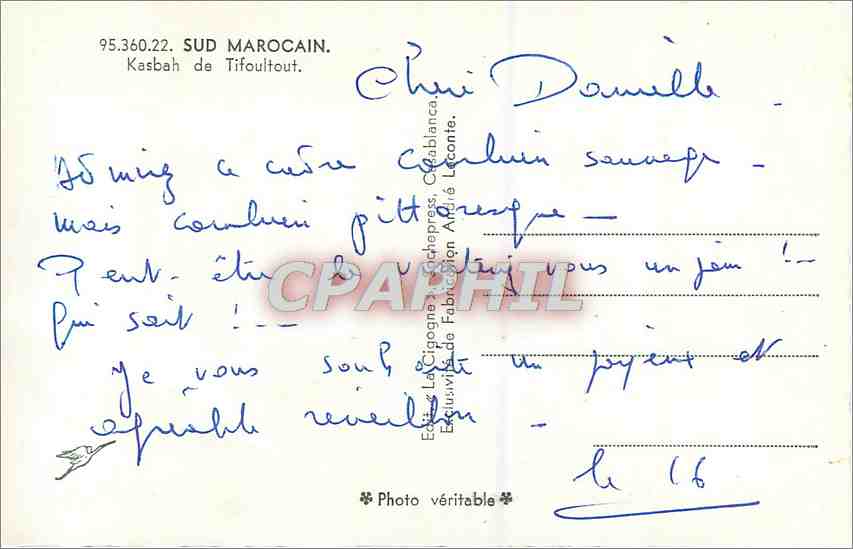 95.360.22. SUD MAROCAIN.
Kasbah de Tifoultout.
Chère Danielle
Admirez ce cadre combien sauvage -
mais combien pittoresque -
Peut-être le visiterez vous un jour ! --
Qui sait ! --
Je vous souhaite un joyeux et
agréable réveillon -
le 16
Edit. « La Cigogne » Hochepress, Casablanca.
Exclusivité de Fabrication André Leconte.
Photo véritable
CPAPHIL